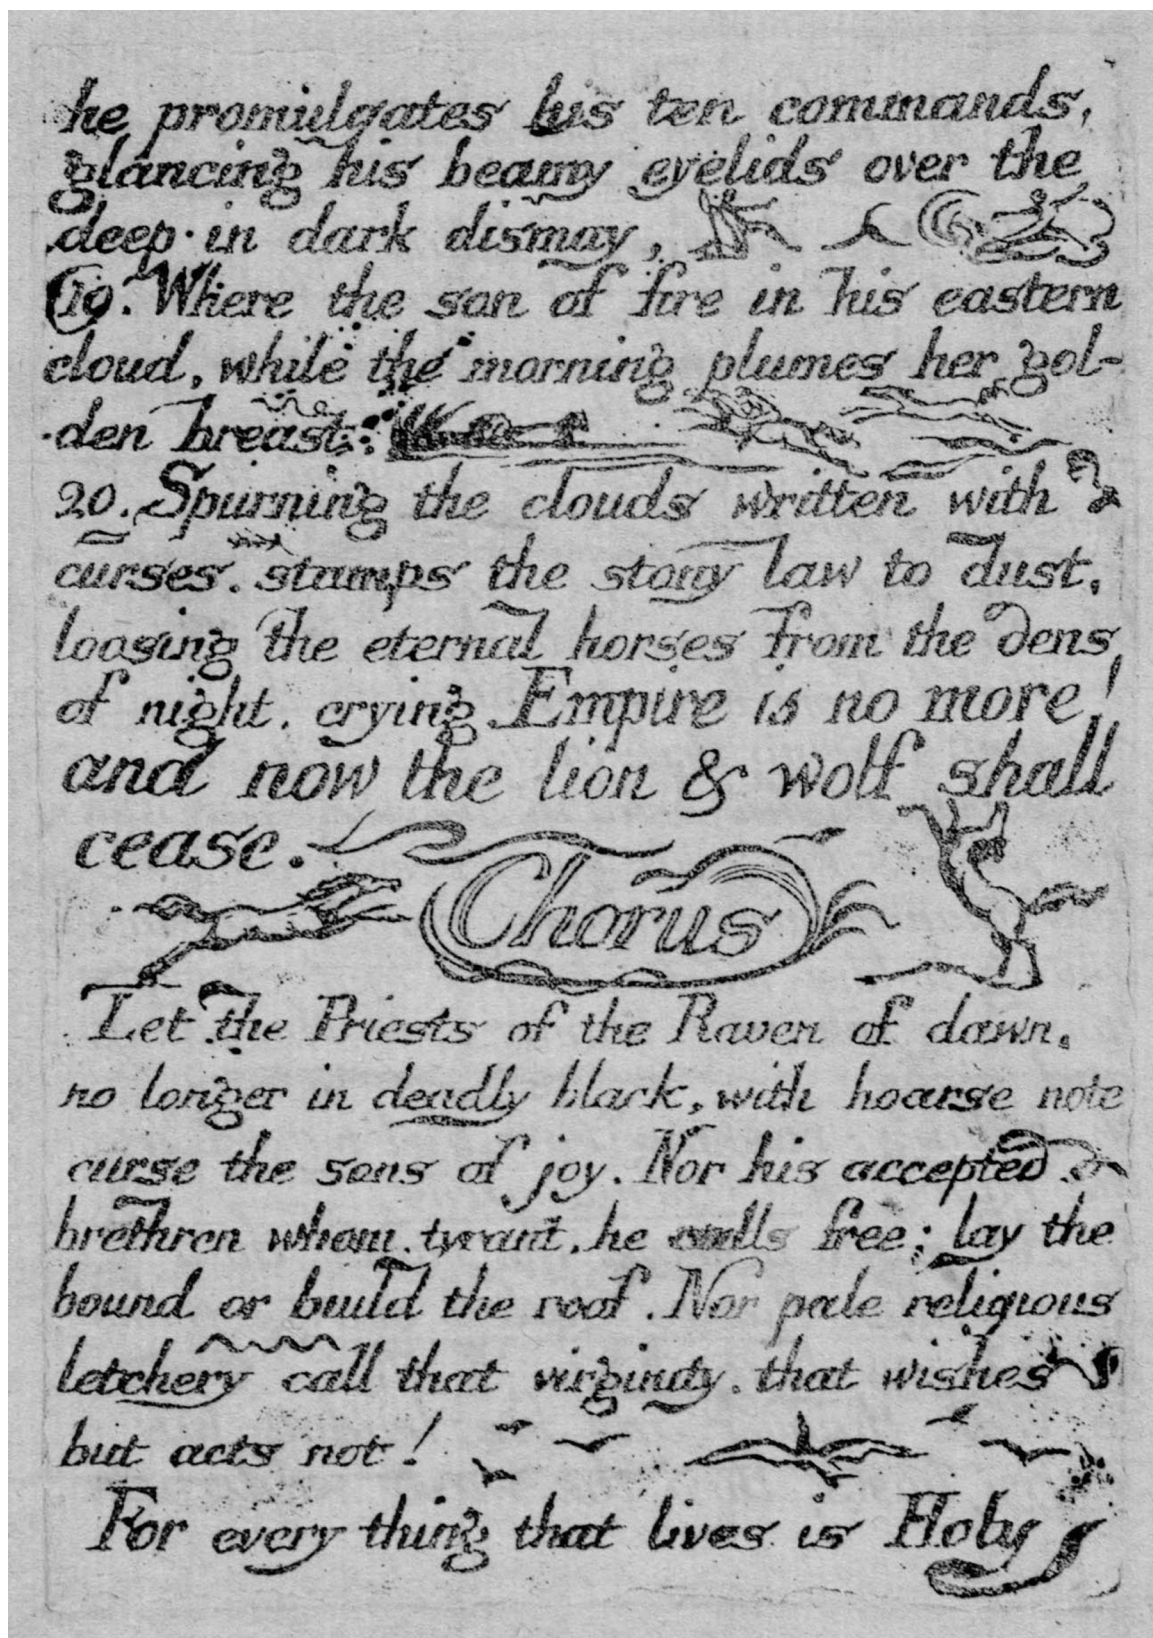 he promulgates his ten commands,
glancing his beamy eyelids over the
deep in dark dismay,
19. Where the son of fire in his eastern
cloud, while the morning plumes her gol-
den breast.
20. Spurning the clouds written with
curses. stamps the stony law to dust,
loosing the eternal horses from the dens
of night. crying Empire is no more!
and now the lion & wolf shall
cease.
Chorus
Let the Priests of the Raven of dawn.
no longer in deadly black, with hoarse note
curse the sons of joy. Nor his accepted
brethren whom, tyrant, he calls free; lay the
bound or build the roof. Nor pale religious
letchery call that virginity. that wishes
but acts not!
For every thing that lives is Holy